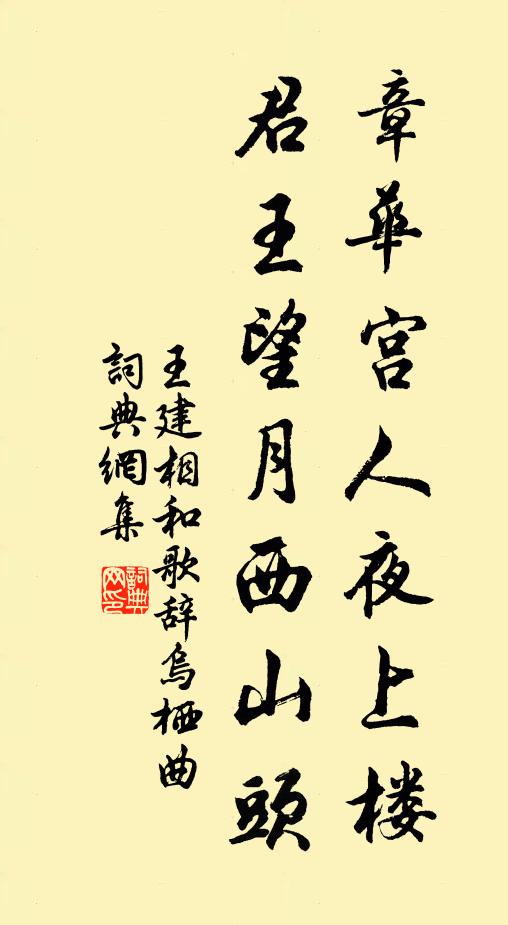 章華宫人夜上楼
君王望月西山頭
王建相和歌辞烏栖曲
詞典網集
詞典网印